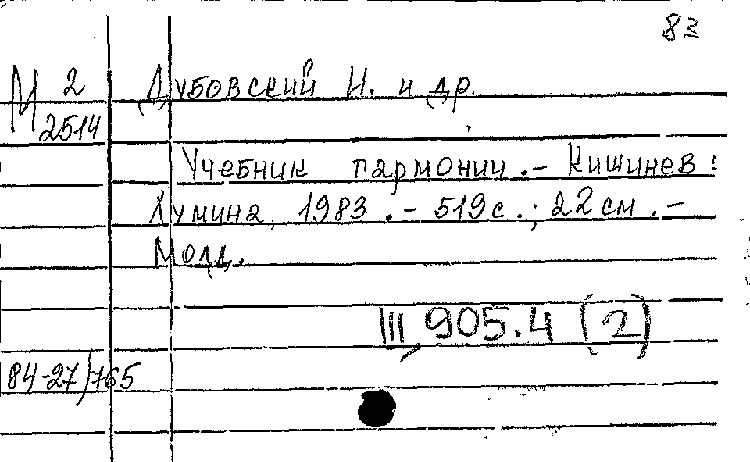 83
М 2
2514
Дубовский И. и др.
Учебник гармонии. - Кишинев:
Лумина, 1983. - 519 с.; 22 см. -
Молд.
III, 905.4 (2)
84-27/165